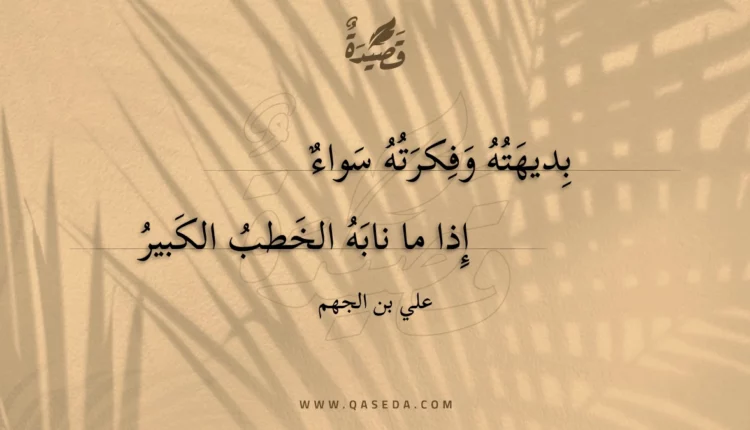 قَصِيدَةٌ
بِديهَتُهُ وَفِكرَتُهُ سَواءٌ
إِذا ما نابَهُ الخَطبُ الكَبيرُ
علي بن الجهم
WWW.QASEDA.COM